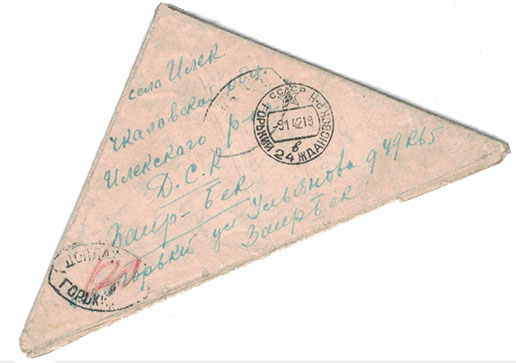 село Илек
Чкаловская обл.
Илекского р-на
Д.С.К
Заир-Бек
г. Горький ул Ульянова д 49 кв 5
Заир Бек
СССР
ГОРЬКИЙ 24 ЖДАНОВСК. Р-Н
-9 1 42 18
в
ДОПЛАТ
ГОРЬКИЙ